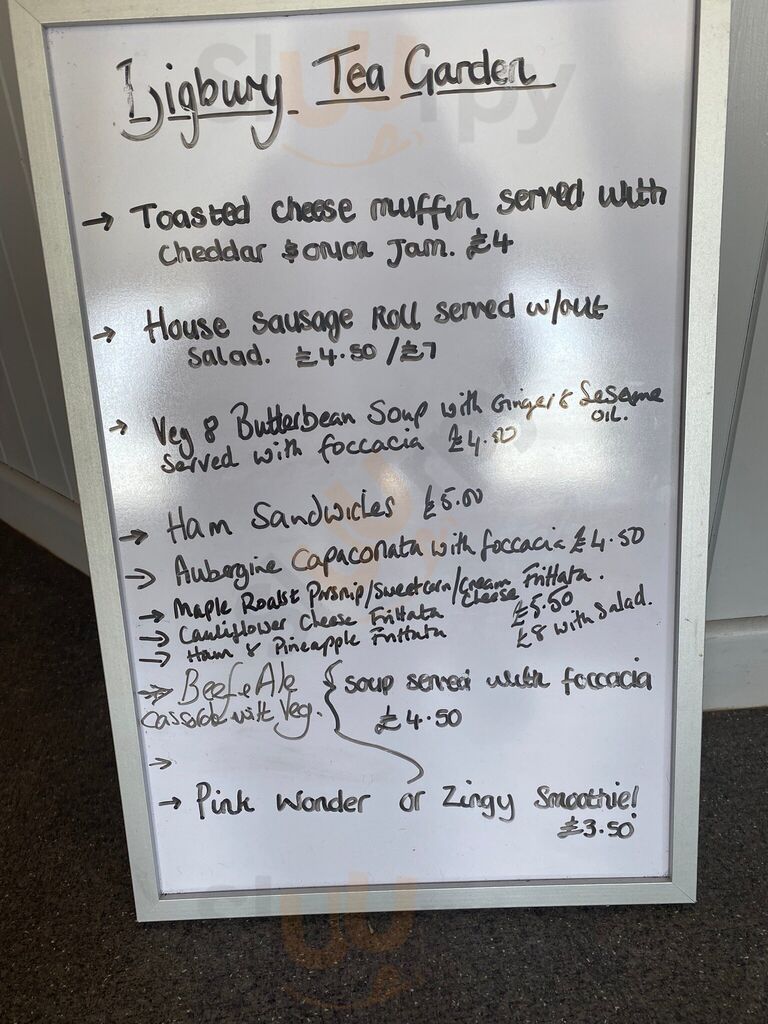 Bigbury Tea Garden
→ Toasted cheese muffin served with
cheddar & onion Jam. £4
→ House Sausage Roll served w/out
salad. £4.50 / £7
→ Veg & Butterbean Soup with Ginger & Seseme
OIL.
Served with foccacia £4.50
→ Ham Sandwiches £5.00
→ Aubergine Capaconata with foccacia £4.50
→ Maple Roast Prsnip/Sweetcorn/Cream Frittata.
Cheese
→ Cauliflower Cheese Frittata £5.50
→ Ham & Pineapple Frittata £8 with Salad.
→ Beef & Ale { Soup served with foccacia
Casserole with Veg. £4.50
→
→ Pink Wonder or Zingy Smoothie!
£3.50